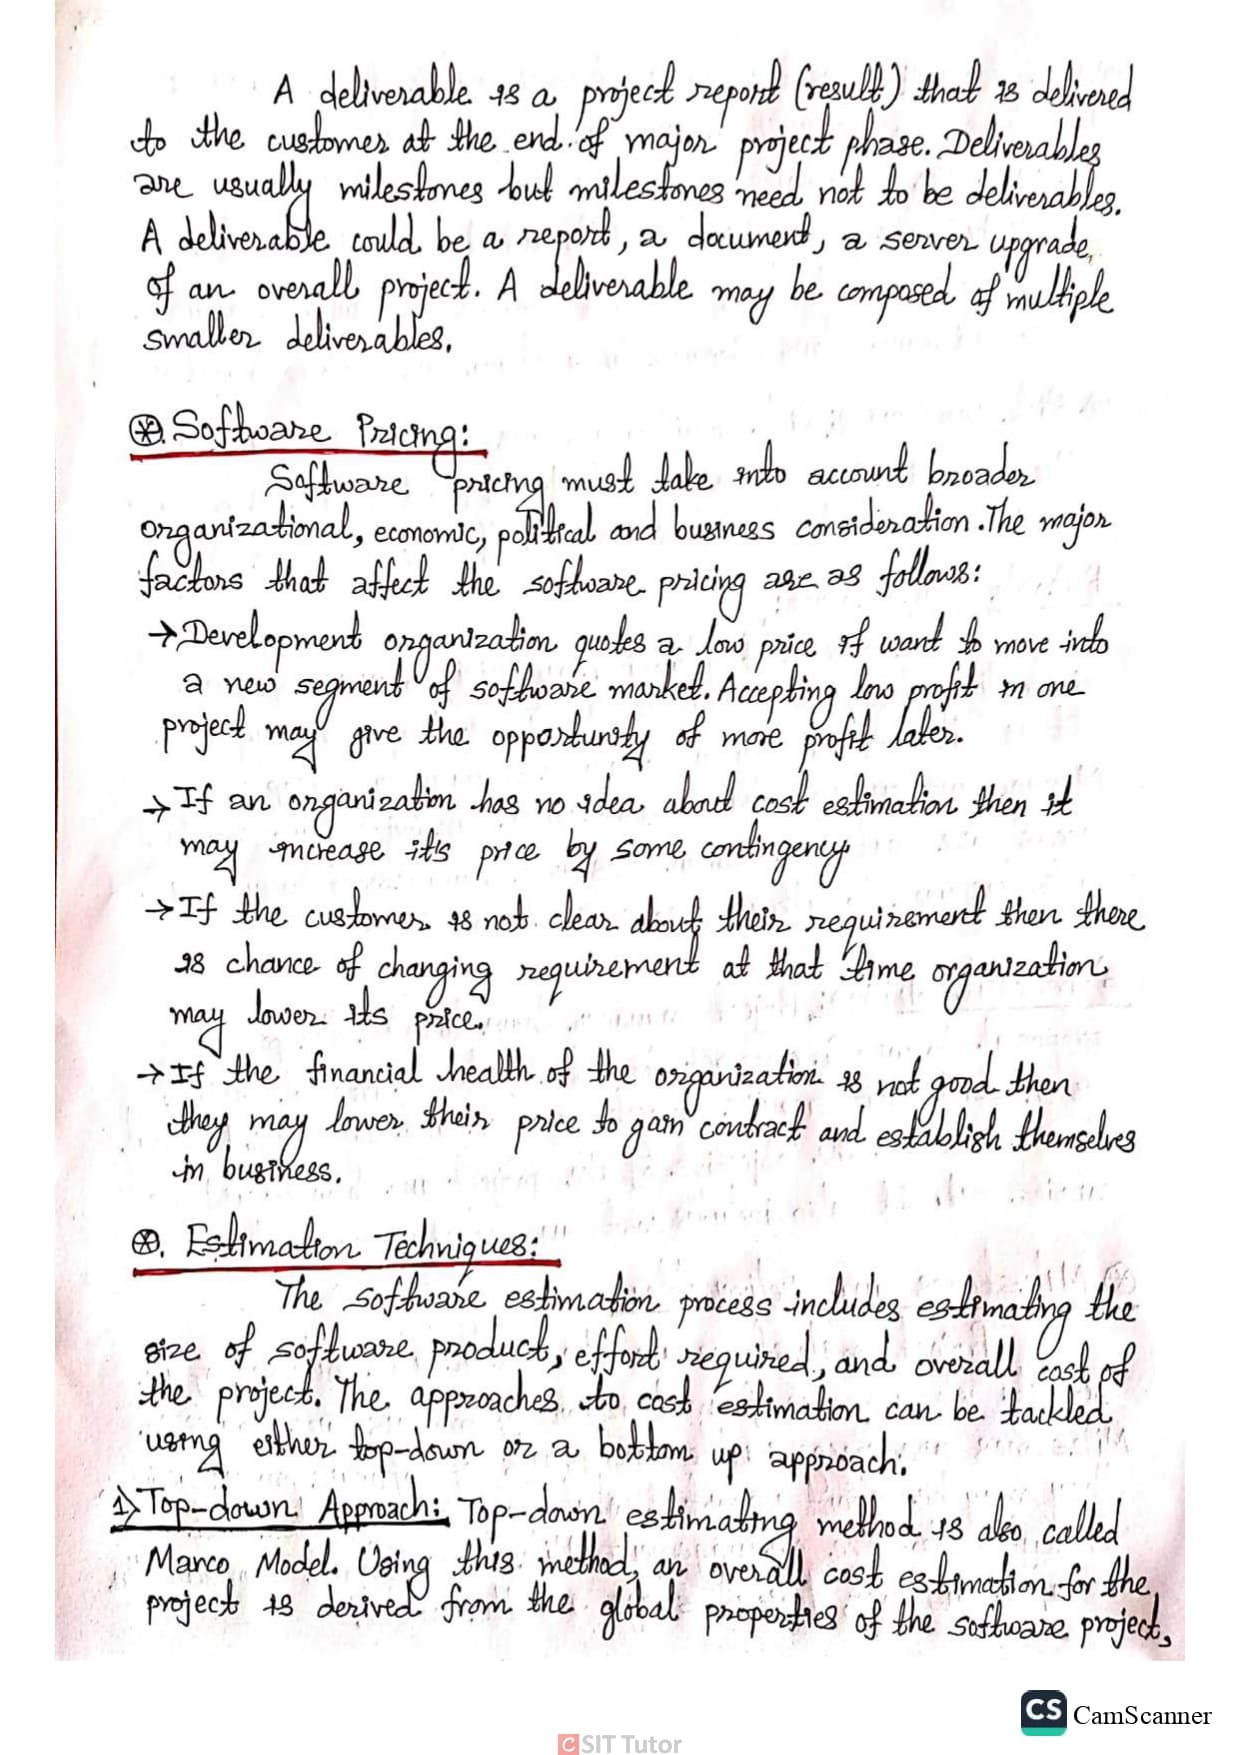 A deliverable is a project report (result) that is delivered
to the customer at the end of major project phase. Deliverables
are usually milestones but milestones need not to be deliverables.
A deliverable could be a report, a document, a server upgrade,
of an overall project. A deliverable may be composed of multiple
smaller deliverables.
⊛. Software Pricing:
Software pricing must take into account broader
organizational, economic, political and business consideration. The major
factors that affect the software pricing are as follows:
→ Development organization quotes a low price if want to move into
a new segment of software market. Accepting low profit in one
project may give the opportunity of more profit later.
→ If an organization has no idea about cost estimation then it
may increase it's price by some contingency
→ If the customer is not clear about their requirement then there
is chance of changing requirement at that time organization
may lower its price.
→ If the financial health of the organization is not good then
they may lower their price to gain contract and establish themselves
in business.
⊛. Estimation Techniques:
The software estimation process includes estimating the
size of software product, effort required, and overall cost of
the project. The approaches to cost estimation can be tackled
using either top-down or a bottom up approach.
1) Top-down Approach: Top-down estimating method is also called
Marco Model. Using this method, an overall cost estimation for the
project is derived from the global properties of the software project,
CS CamScanner
CSIT Tutor